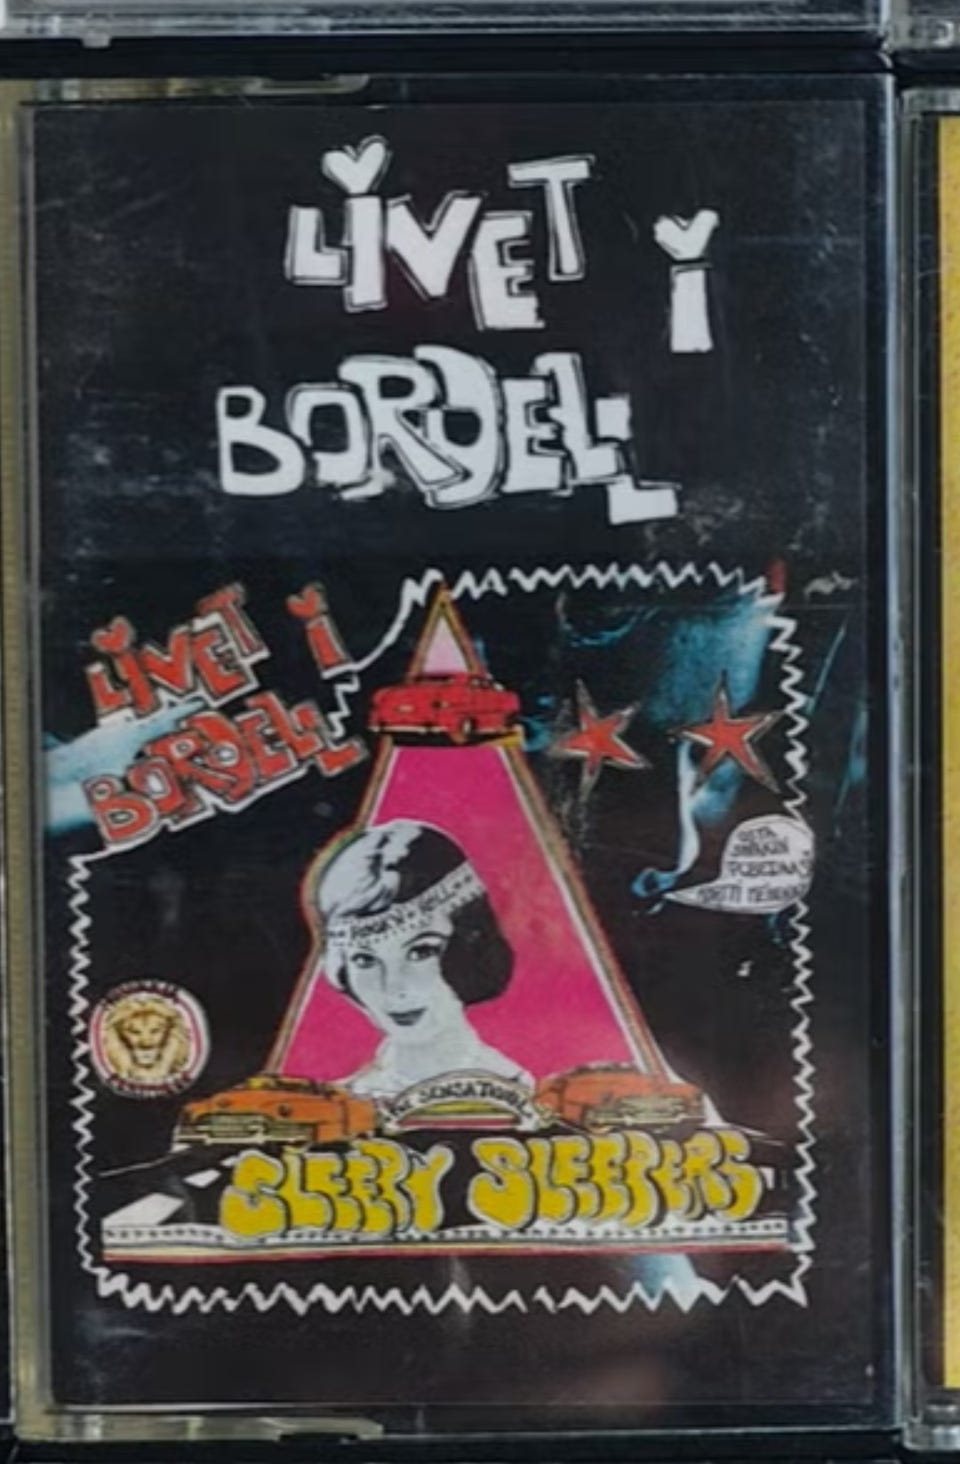 LIVET I
BORDELL
LIVET I
BORDELL
ROCK'N ROLL
MARTTI
SENSATIONAL
SLEEPY SLEEPERS